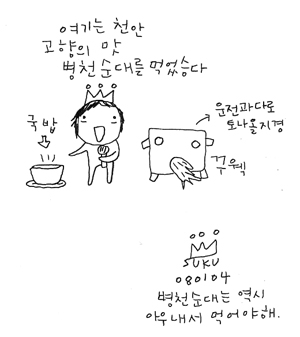 여기는 천안
고향의 맛
병천순대를 먹었슴다
국밥
운전과다로
토나올지경
꾸웩
SUKU
080104
병천순대는 역시
아우내서 먹어야해.